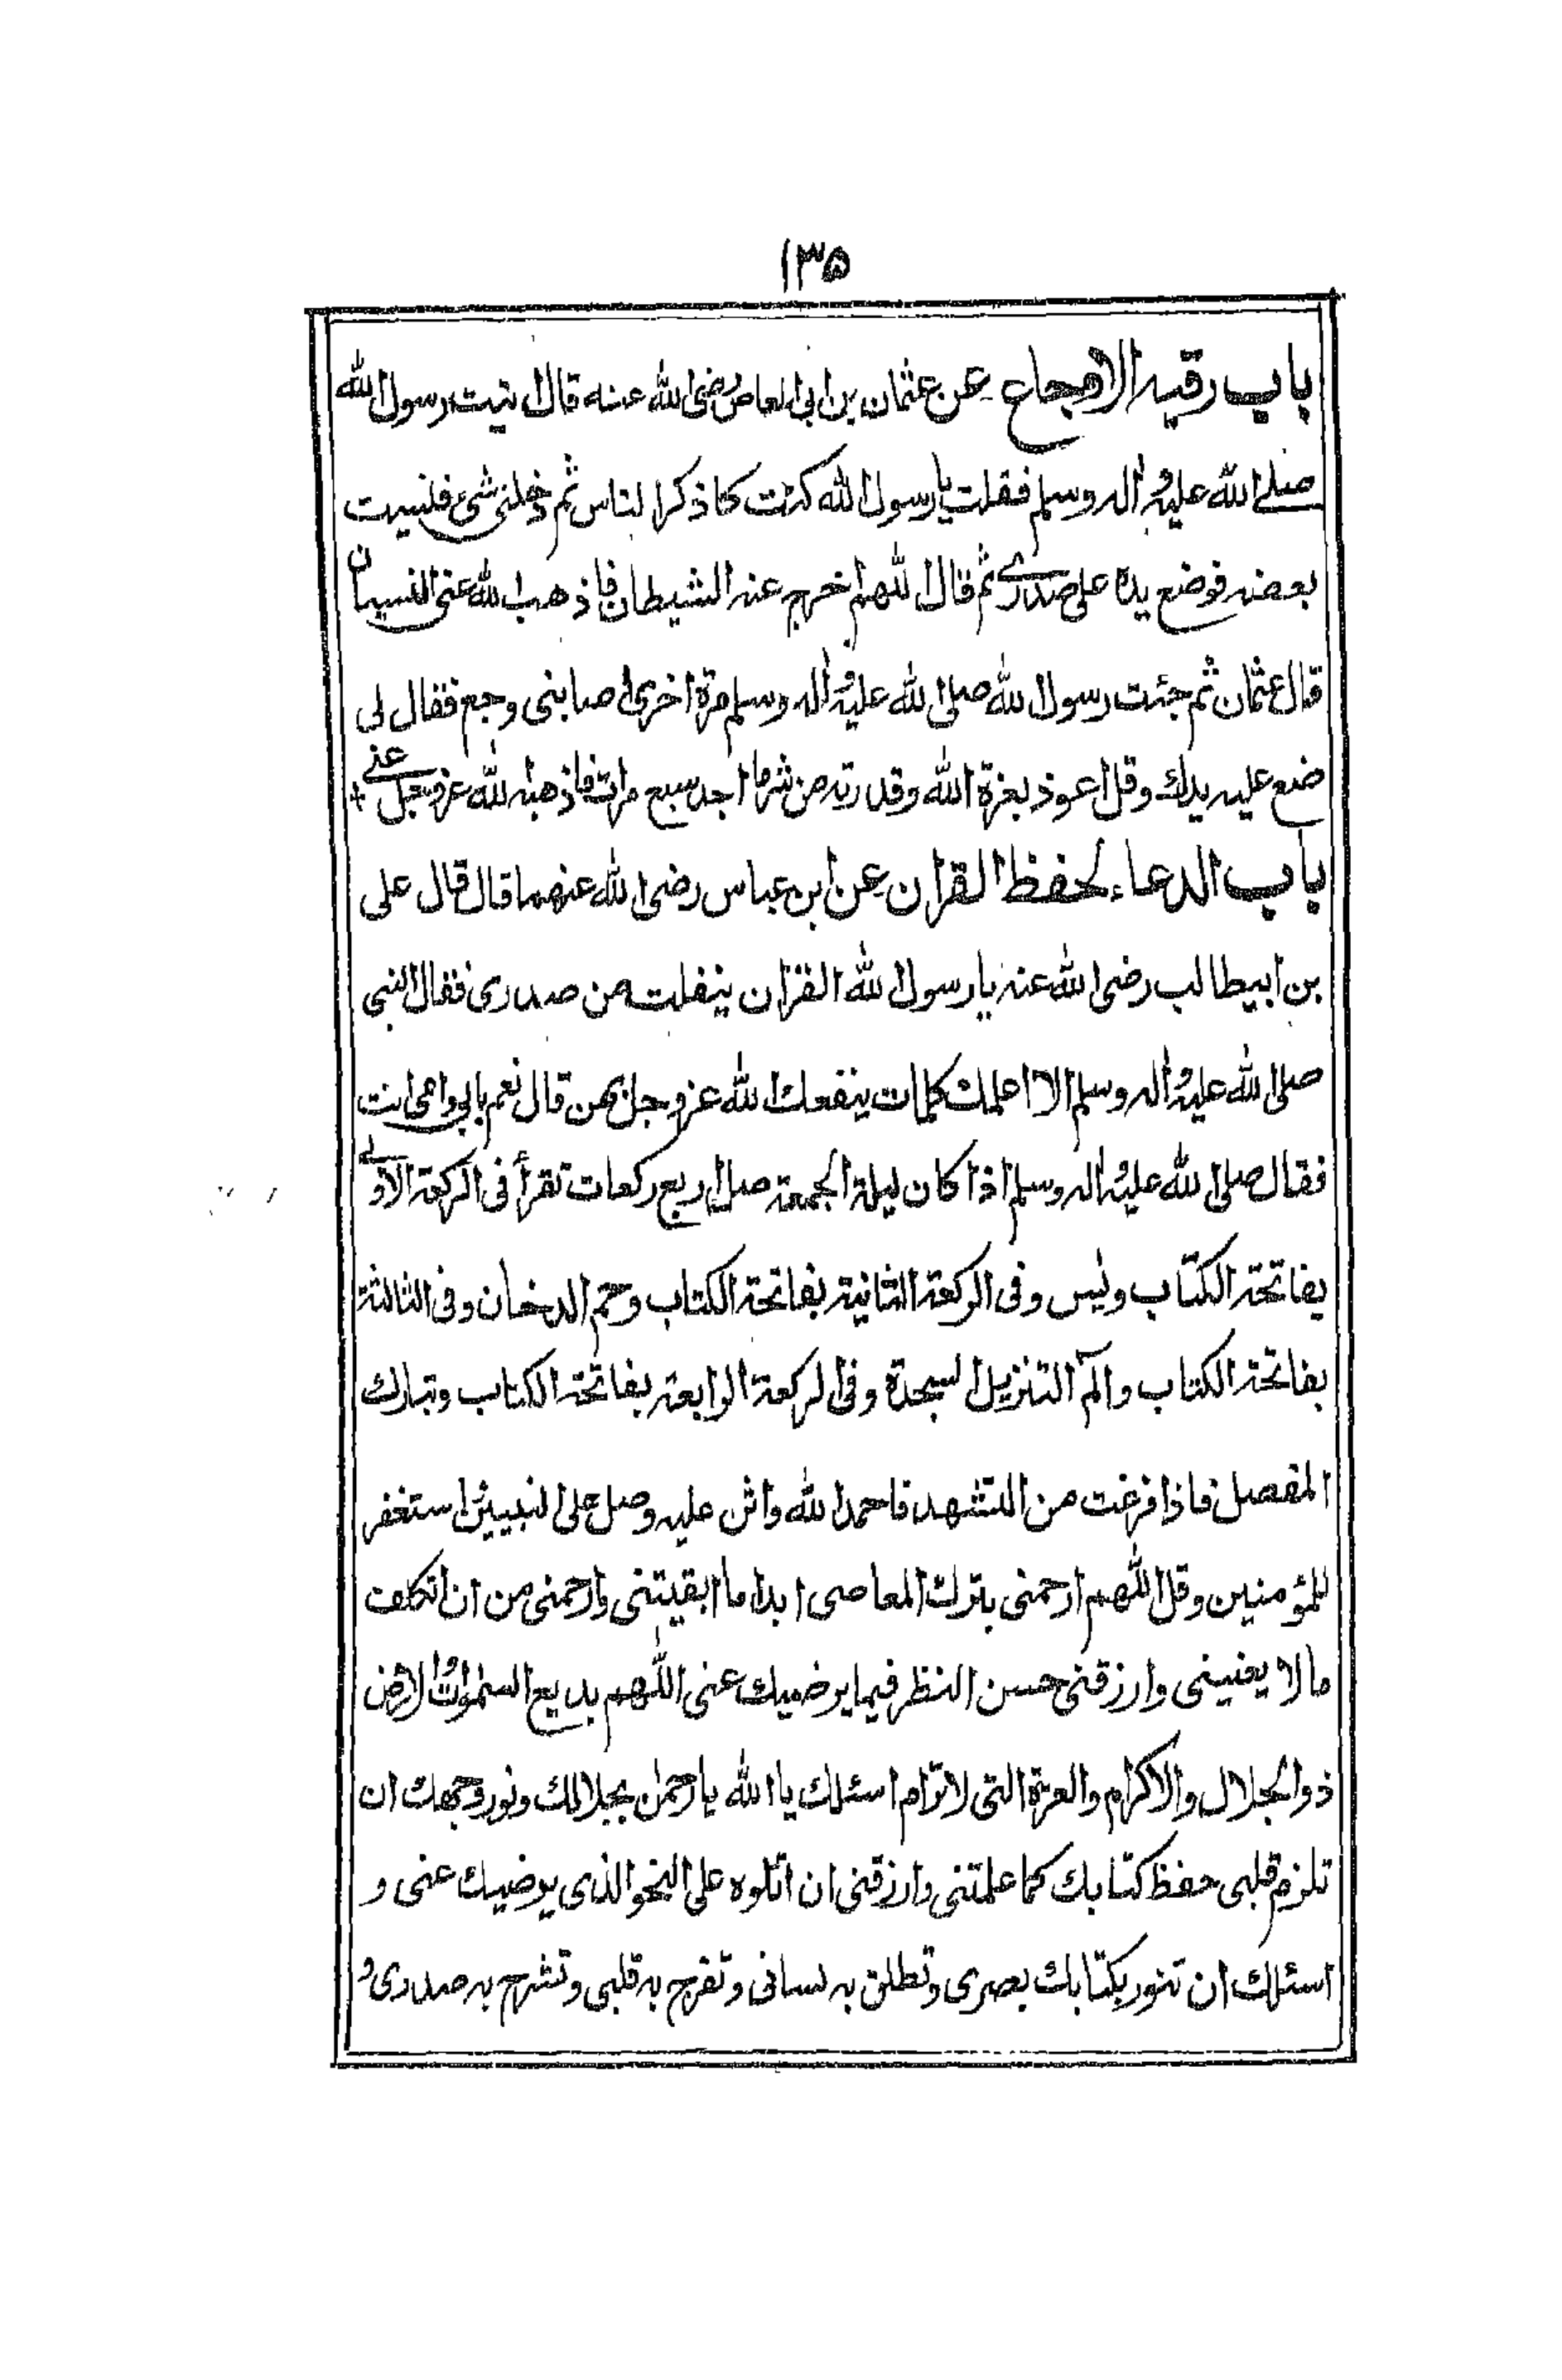 ۱۳۵
باب رقیه الاوجاع عن عثمان بن ابی العاص رضی الله عنه قال اتیت رسول الله
صلے الله علیه و اله وسلم فقلت یا رسول الله کنت کاذکر الناس ثم دخلنی شیٔ فنسیت
بعضه فوضع یده علی صدری ثم قال اللهم اخرج عنه الشیطان فاذهب الله عنی النسیان
قال عثمان ثم جئت رسول الله صلی الله علیه و اله وسلم مرة اخری اصابنی وجع فقال لی
ضع علیه یدك وقل اعوذ بعزة الله وقدرته من شر ما اجد سبع مرات فاذهبه الله عزوجل عنے +
باب الدعاء لحفظ القرآن عن ابن عباس رضی الله عنهما قال قال علی
بن ابیطالب رضی الله عنه یا رسول الله القرآن ینفلت من صدری فقال النبی
صلی الله علیه و اله وسلم الا اعلمك کلمات ینفعك الله عزوجل بهن قال نعم بابی وامی انت
فقال صلی الله علیه و اله وسلم اذا کان لیلة الجمعة صل اربع رکعات تقرأ فی الرکعة الاولے
بفاتحة الکتاب ویٰس وفی الرکعة الثانیة بفاتحة الکتاب وحم الدخان وفی الثالثة
بفاتحة الکتاب والٓمٓ التنزیل السجدة وفی الرکعة الرابعة بفاتحة الکتاب وتبارك
المفصل فاذا فرغت من التشهد فاحمد الله واثن علیه وصل علی النبیین واستغفر
للمؤمنین وقل اللهم ارحمنی بترك المعاصی ابدا ما ابقیتنی وارحمنی من ان اتکلف
مالا یعنینی وارزقنی حسن النظر فیما یرضیك عنی اللهم بدیع السمٰوات والارض
ذوالجلال والاکرام والعزة التی لاترام اسئلك یا الله یا رحمٰن بجلالك ونور وجهك ان
تلزم قلبی حفظ کتابك کما علمتنی وارزقنی ان اتلوه علی النحو الذی یرضیك عنی و
اسئلك ان تنور بکتابك بصری وتطلق به لسانی وتفرج به قلبی وتشرح به صدری و